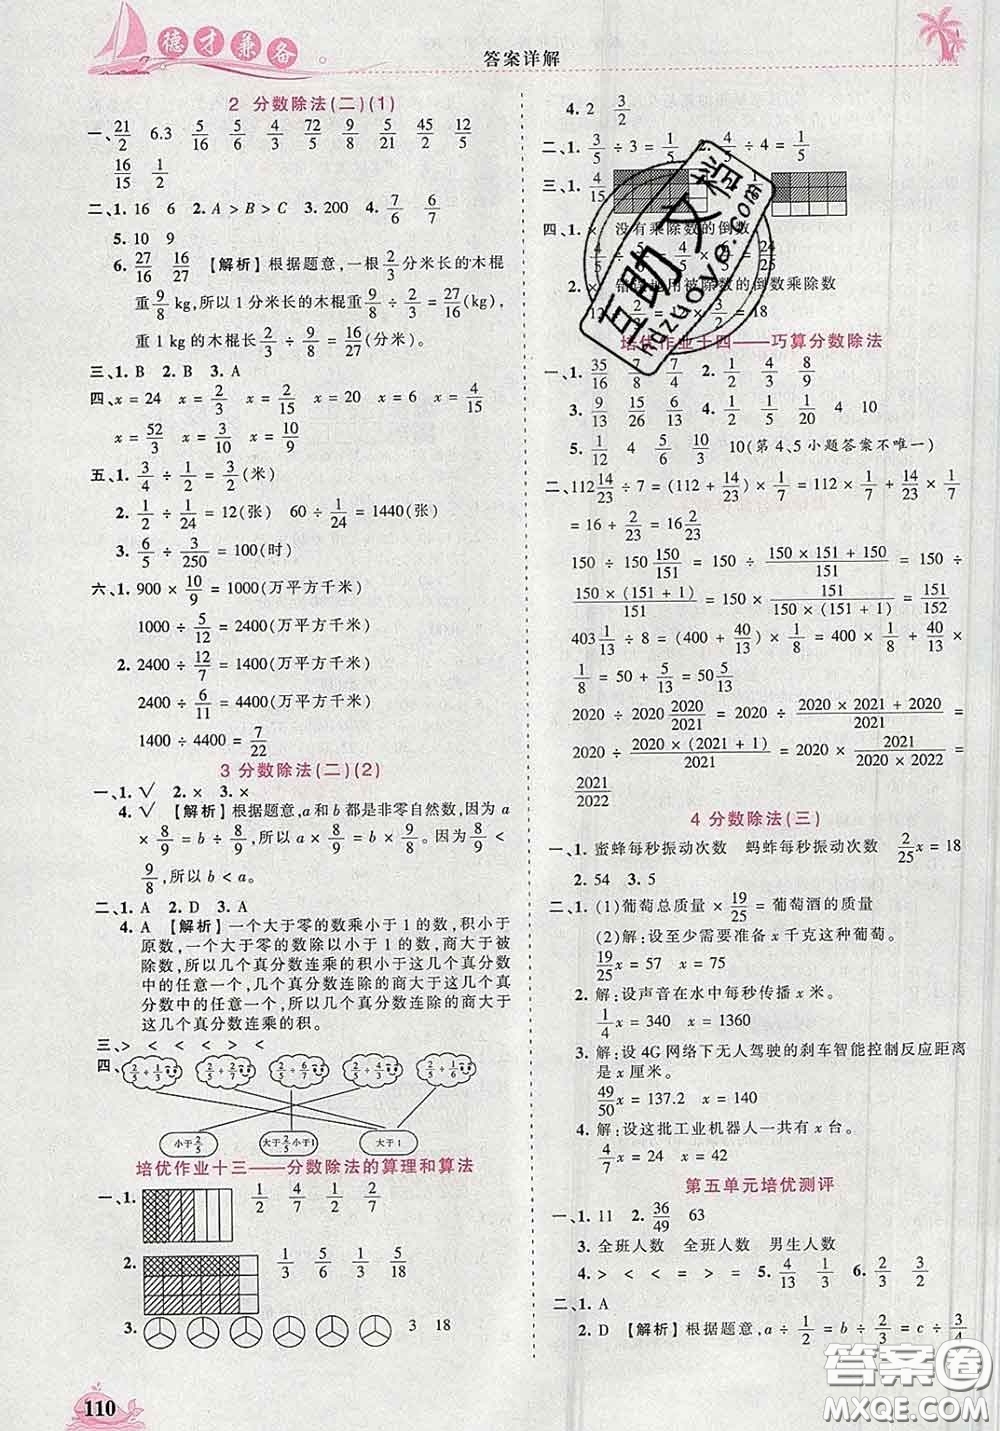 德才兼备
答案详解
2 分数除法(二)(1)
一、21/2 6.3 5/16 5/6 4/5 72/5 9/8 5/21 45/2 12/5
16/15 1/2
二、1. 16 6 2. A > B > C 3. 200 4. 7/6 6/7
5. 10 9
6. 27/16 16/27 【解析】根据题意,一根2/3分米长的木棍
重9/8 kg,所以1分米长的木棍重9/8 ÷ 2/3 = 27/16(kg),
重1 kg的木棍长2/3 ÷ 9/8 = 16/27(分米)。
三、1. B 2. B 3. A
四、x = 24 x = 2/3 x = 2/15 x = 20 x = 6 x = 4/15
x = 52/3 x = 3/10 x = 10/9
五、1. 3/4 ÷ 1/2 = 3/2(米)
2. 1/2 ÷ 1/24 = 12(张) 60 ÷ 1/24 = 1440(张)
3. 6/5 ÷ 3/250 = 100(时)
六、1. 900 × 10/9 = 1000(万平方千米)
1000 ÷ 5/12 = 2400(万平方千米)
2. 2400 ÷ 12/7 = 1400(万平方千米)
2400 ÷ 6/11 = 4400(万平方千米)
1400 ÷ 4400 = 7/22
3 分数除法(二)(2)
一、1. √ 2. × 3. ×
4. √ 【解析】根据题意,a和b都是非零自然数,因为a
× 8/9 = b ÷ 8/9,所以a × 8/9 = b × 9/8。因为8/9 <
9/8,所以b < a。
二、1. A 2. D 3. A
4. A 【解析】一个大于零的数乘小于1的数,积小于
原数,一个大于零的数除以小于1的数,商大于被
除数,所以几个真分数连乘的积小于这几个真分数
中的任意一个,几个真分数连除的商大于这几个真分
数中的任意一个,所以几个真分数连除的商大于
这几个真分数连乘的积。
三、> < < < > <
四、2/5 ÷ 1/3 2/5 ÷ 2/7 2/5 ÷ 6/7 2/5 ÷ 4/3 2/5 ÷ 2/3
小于2/5 大于2/5小于1 大于1
培优作业十三——分数除法的算理和算法
一、1. 1/2 2/4 1/2 2/7
2. 1/3 5/6 1/3 5/18
3. 3 18
4. 2 3/2
二、1. 3/5 ÷ 3 = 1/5 2. 4/5 ÷ 4 = 1/5
三、1. 4/15
四、1. × 没有乘除数的倒数
2. × 错误地用被除数的倒数乘除数
培优作业十四——巧算分数除法
一、1. 35/16 7/8 7/4 2. 1/2 4/3 8/9
3. 9/13 15/26 6/13 4. 1/2 1/5 1/20 4 10
5. 1/12 4 5/6 10/3 10(第4、5小题答案不唯一)
二、112 14/23 ÷ 7 = (112 + 14/23) × 1/7 = 112 × 1/7 + 14/23 × 1/7
= 16 + 2/23 = 16 2/23
150 ÷ 150 150/151 = 150 ÷ (150 × 151 + 150)/151 = 150 ÷
(150 × (151 + 1))/151 = 150 × 151/(150 × (151 + 1)) = 151/152
403 1/13 ÷ 8 = (400 + 40/13) × 1/8 = 400 × 1/8 + 40/13 ×
1/8 = 50 + 5/13 = 50 5/13
2020 ÷ 2020 2020/2021 = 2020 ÷ (2020 × 2021 + 2020)/2021 =
2020 ÷ (2020 × (2021 + 1))/2021 = 2020 × 2021/(2020 × 2022) =
2021/2022
4 分数除法(三)
一、1. 蜜蜂每秒振动次数 蚂蚱每秒振动次数 2/25 x = 18
2. 54 3. 5
二、1. (1)葡萄总质量 × 19/25 = 葡萄酒的质量
(2)解:设至少需要准备x千克这种葡萄。
19/25 x = 57 x = 75
2. 解:设声音在水中每秒传播x米。
1/4 x = 340 x = 1360
3. 解:设4G网络下无人驾驶的刹车智能控制反应距离
是x厘米。
49/50 x = 137.2 x = 140
4. 解:设这批工业机器人一共有x台。
4/7 x = 24 x = 42
第五单元培优测评
一、1. 11 2. 36/49 63
3. 全班人数 全班人数 男生人数
4. > < < = > < 5. 4/13 1/3 6. 2/3 3/2
二、1. A
2. D 【解析】根据题意,a ÷ 1/2 = b ÷ 2/3 = c ÷ 3/4
110
互助文档
huzhunoye.com
答案圈
MXQE.COM